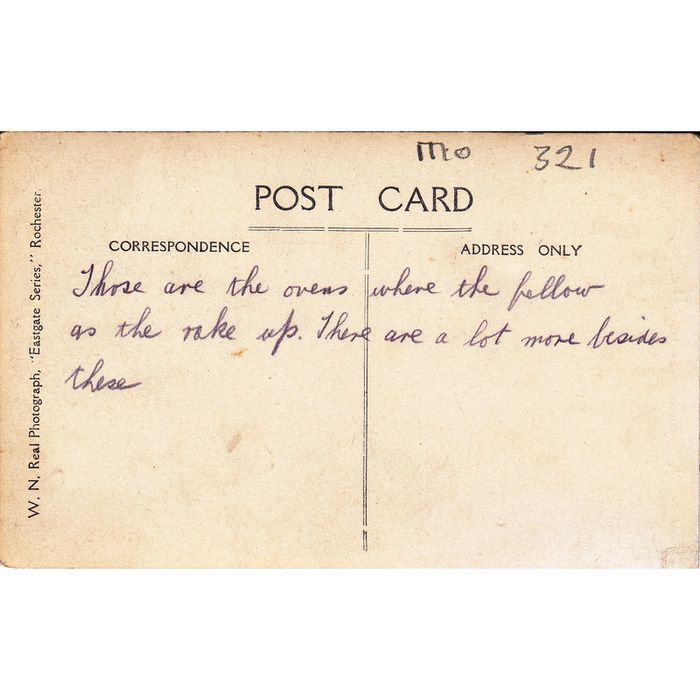 mo 321
POST CARD
CORRESPONDENCE
ADDRESS ONLY
Those are the ovens where the fellow
as the rake up. There are a lot more besides
these
W. N. Real Photograph, "Eastgate Series," Rochester.